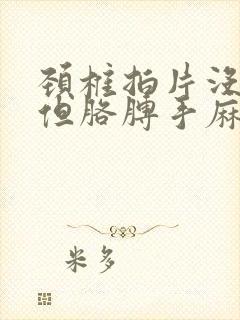 颈椎拍片没
但胳膊手麻
米多